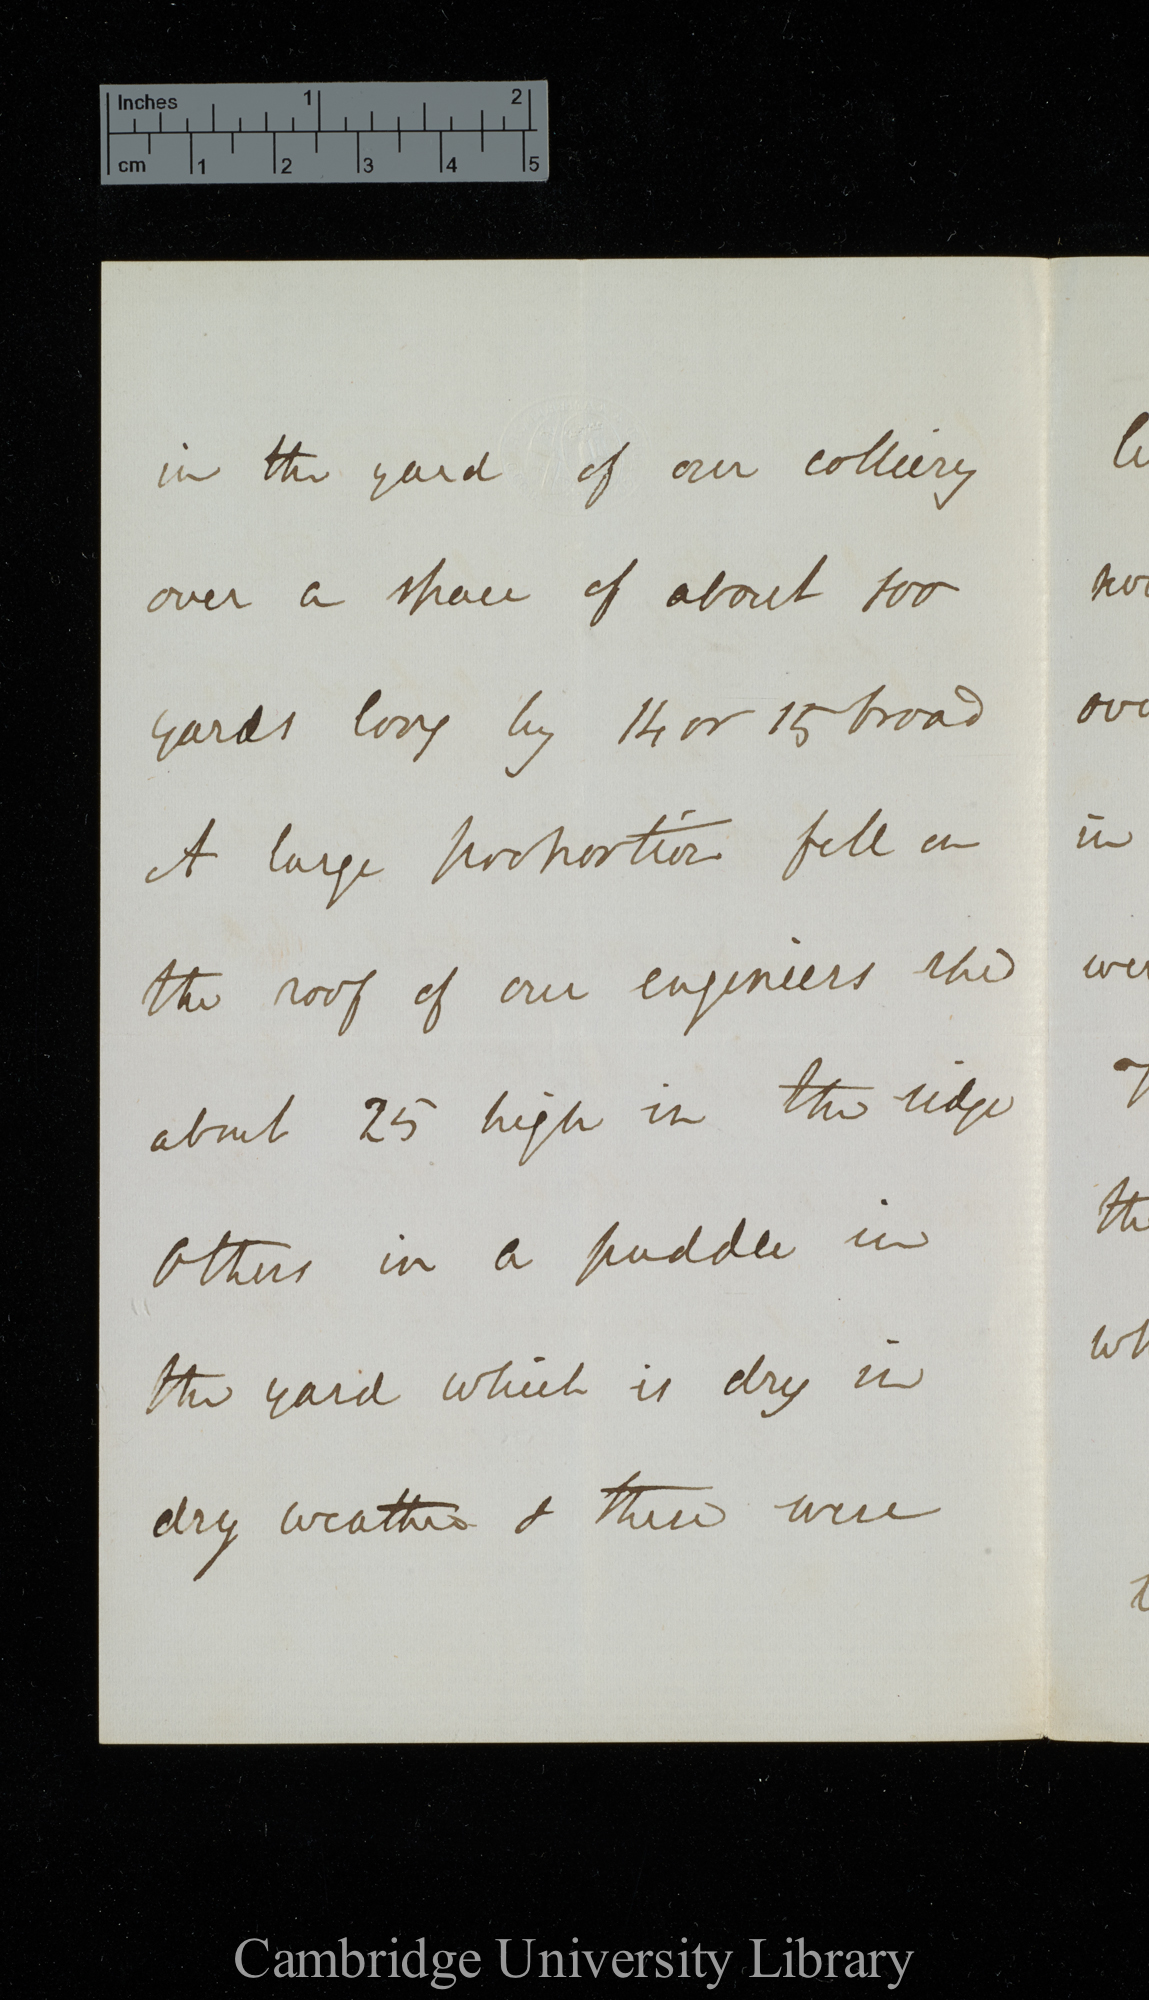 Inches 1 2
cm 1 2 3 4 5
in the yard of our colliery
over a space of about 100
yards long by 14 or 15 broad
A large proportion fell on
the roof of our engineers shed
about 25 high in the ridge
Others in a puddle in
the yard which is dry in
dry weather & these were
in
Cambridge University Library